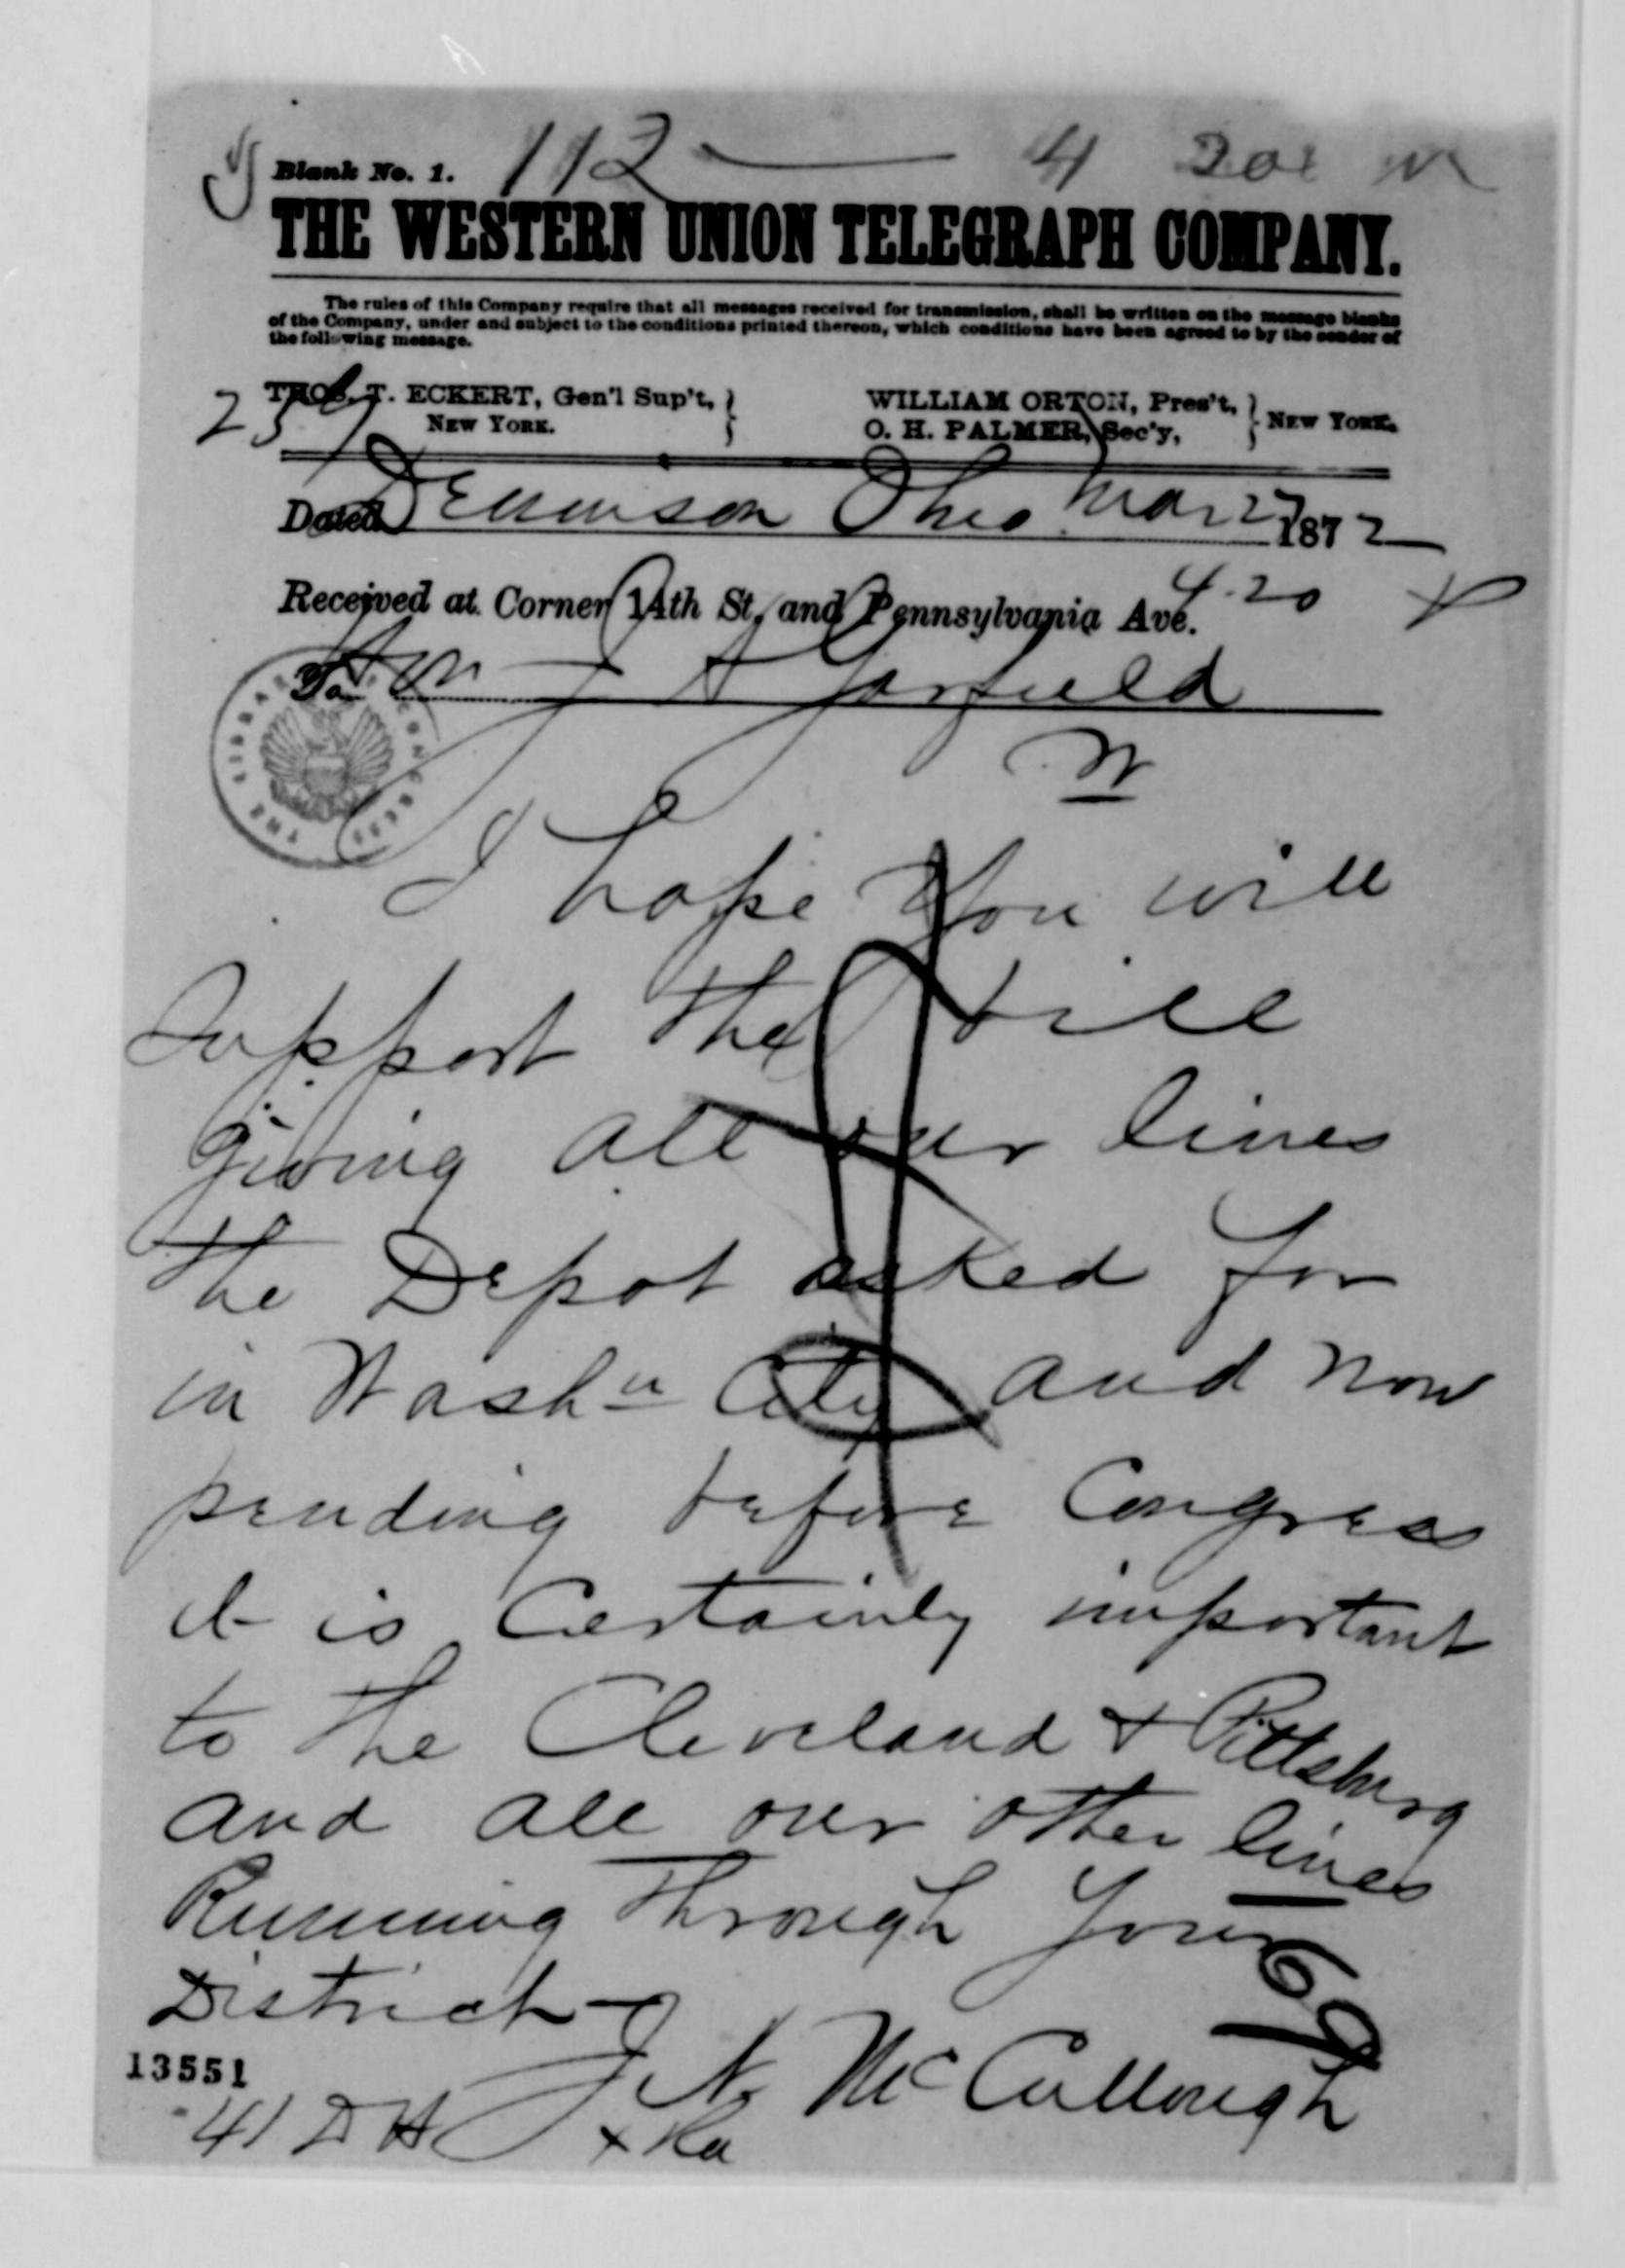 Blank No. 1. 112 — 4
THE WESTERN UNION TELEGRAPH COMPANY.
The rules of this Company require that all messages received for transmission, shall be written on the message blanks
of the Company, under and subject to the conditions printed thereon, which conditions have been agreed to by the sender of
the following message.
THOS. T. ECKERT, Gen'l Sup't, WILLIAM ORTON, Pres't,
NEW YORK. O. H. PALMER, Sec'y, NEW YORK.
Dated Dennison Ohio Mar 27 1872
Received at Corner 14th St. and Pennsylvania Ave. 4.20
To Hon J A Garfield
W
I hope you will
support the bill
giving all our lines
the Depot asked for
in Washn City and now
pending before Congress
it is Certainly important
to the Cleveland & Pittsburg
and all our other lines
Running through your
District—
J N McCullough
13551
41 DH
69
THE LIBRARY OF CONGRESS